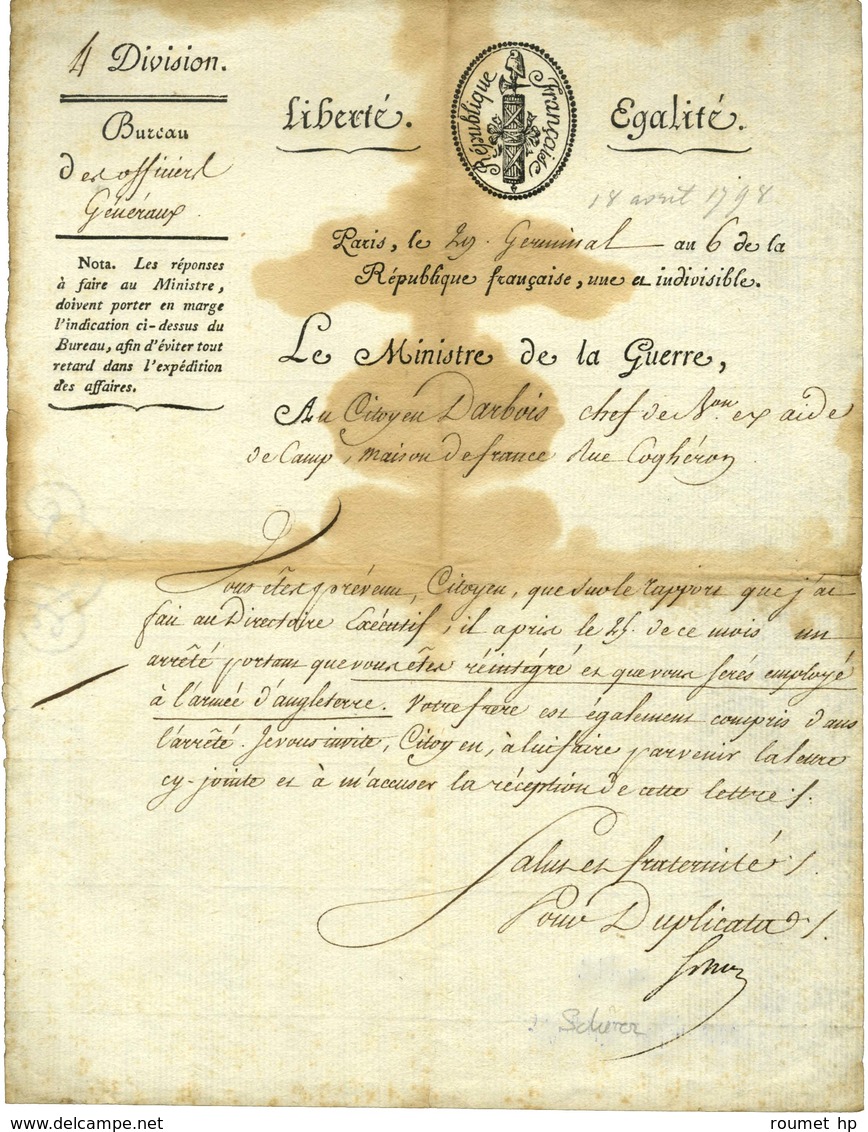 4 Division.
Bureau
des officiers
Généraux
Nota. Les réponses
à faire au Ministre,
doivent porter en marge
l'indication ci-dessus du
Bureau, afin d'éviter tout
retard dans l'expédition
des affaires.
Liberté.
République Française
Egalité.
18 avril 1798
Paris, le 29. Germinal an 6 de la
République française, une et indivisible.
Le Ministre de la Guerre,
Au Citoyen Darbois chef de Bon. ex aide
de Camp, maison de france Rue Coghéron
Vous êtes prévenu, Citoyen, que sur le rapport que j'ai
fait au Directoire Exécutif, il a pris le 25. de ce mois un
arrêté portant que vous êtes réintégré et que vous serés employé
à l'armée d'angleterre. Votre frere est également compris dans
l'arrêté. Je vous invite, Citoyen, à lui faire parvenir la lettre
cy-jointe et à m'accuser la réception de cette lettre ./.
Salut et fraternité ./.
Pour Duplicata ./.
? Scherer
roumet hp